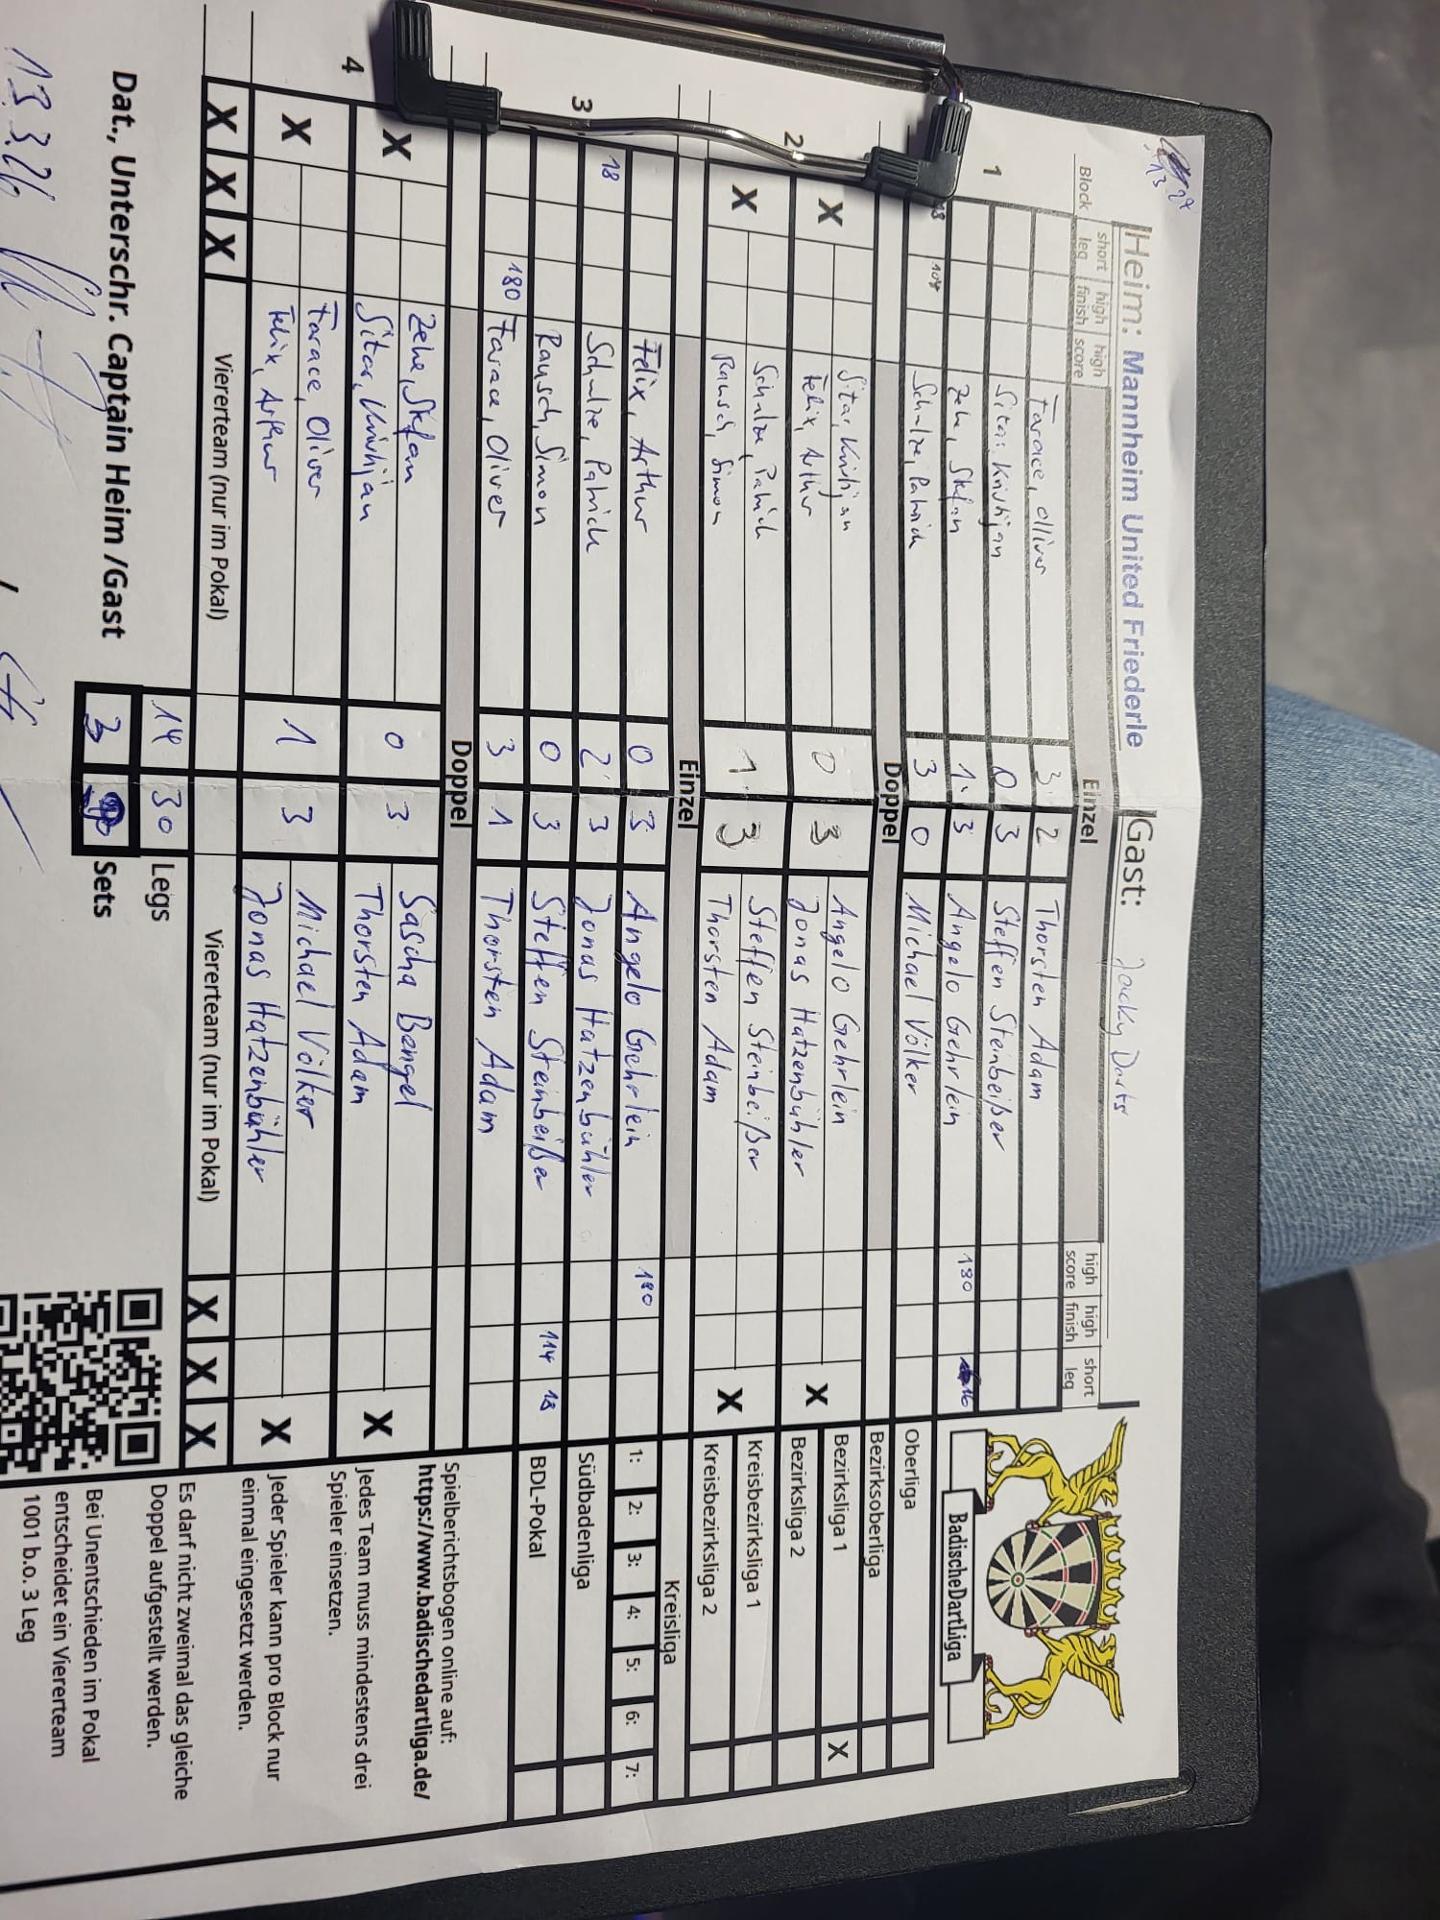 Heim: Mannheim United Friederle Gast: Jacky Darts
Block short leg high finish high score Einzel high score high finish short leg
1 Farace, Oliver 3 2 Thorsten Adam
Sitar, Kristijan 0 3 Steffen Steinbeißer
Zehe, Stefan 1 3 Angelo Gehrlein 180 16
18 104 Schulze, Patrick 3 0 Michael Völker
Doppel
2 X Sitar, Kristijan 0 3 Angelo Gehrlein X
Felix, Arthur Jonas Hatzenbühler
X Schulze, Patrick 1 3 Steffen Steinbeißer X
Rausch, Simon Thorsten Adam
Einzel
3 Felix, Arthur 0 3 Angelo Gehrlein 180
18 Schulze, Patrick 2 3 Jonas Hatzenbühler
Rausch, Simon 0 3 Steffen Steinbeißer 114 18
180 Farace, Oliver 3 1 Thorsten Adam
Doppel
4 X Zehe, Stefan 0 3 Sascha Bengel X
Sitar, Kristijan Thorsten Adam
X Farace, Oliver 1 3 Michael Völker X
Felix, Arthur Jonas Hatzenbühler
X X X Viererteam (nur im Pokal) Viererteam (nur im Pokal) X X X
14 30 Legs
Dat., Unterschr. Captain Heim /Gast 3 9 Sets
13.3.26
BadischeDartLiga
Oberliga
Bezirksoberliga
Bezirksliga 1 X
Bezirksliga 2
Kreisbezirksliga 1
Kreisbezirksliga 2
Kreisliga
1: 2: 3: 4: 5: 6: 7:
Südbadenliga
BDL-Pokal
Spielberichtsbogen online auf:
https://www.badischedartliga.de/
Jedes Team muss mindestens drei
Spieler einsetzen.
Jeder Spieler kann pro Block nur
einmal eingesetzt werden.
Es darf nicht zweimal das gleiche
Doppel aufgestellt werden.
Bei Unentschieden im Pokal
entscheidet ein Viererteam
1001 b.o. 3 Leg